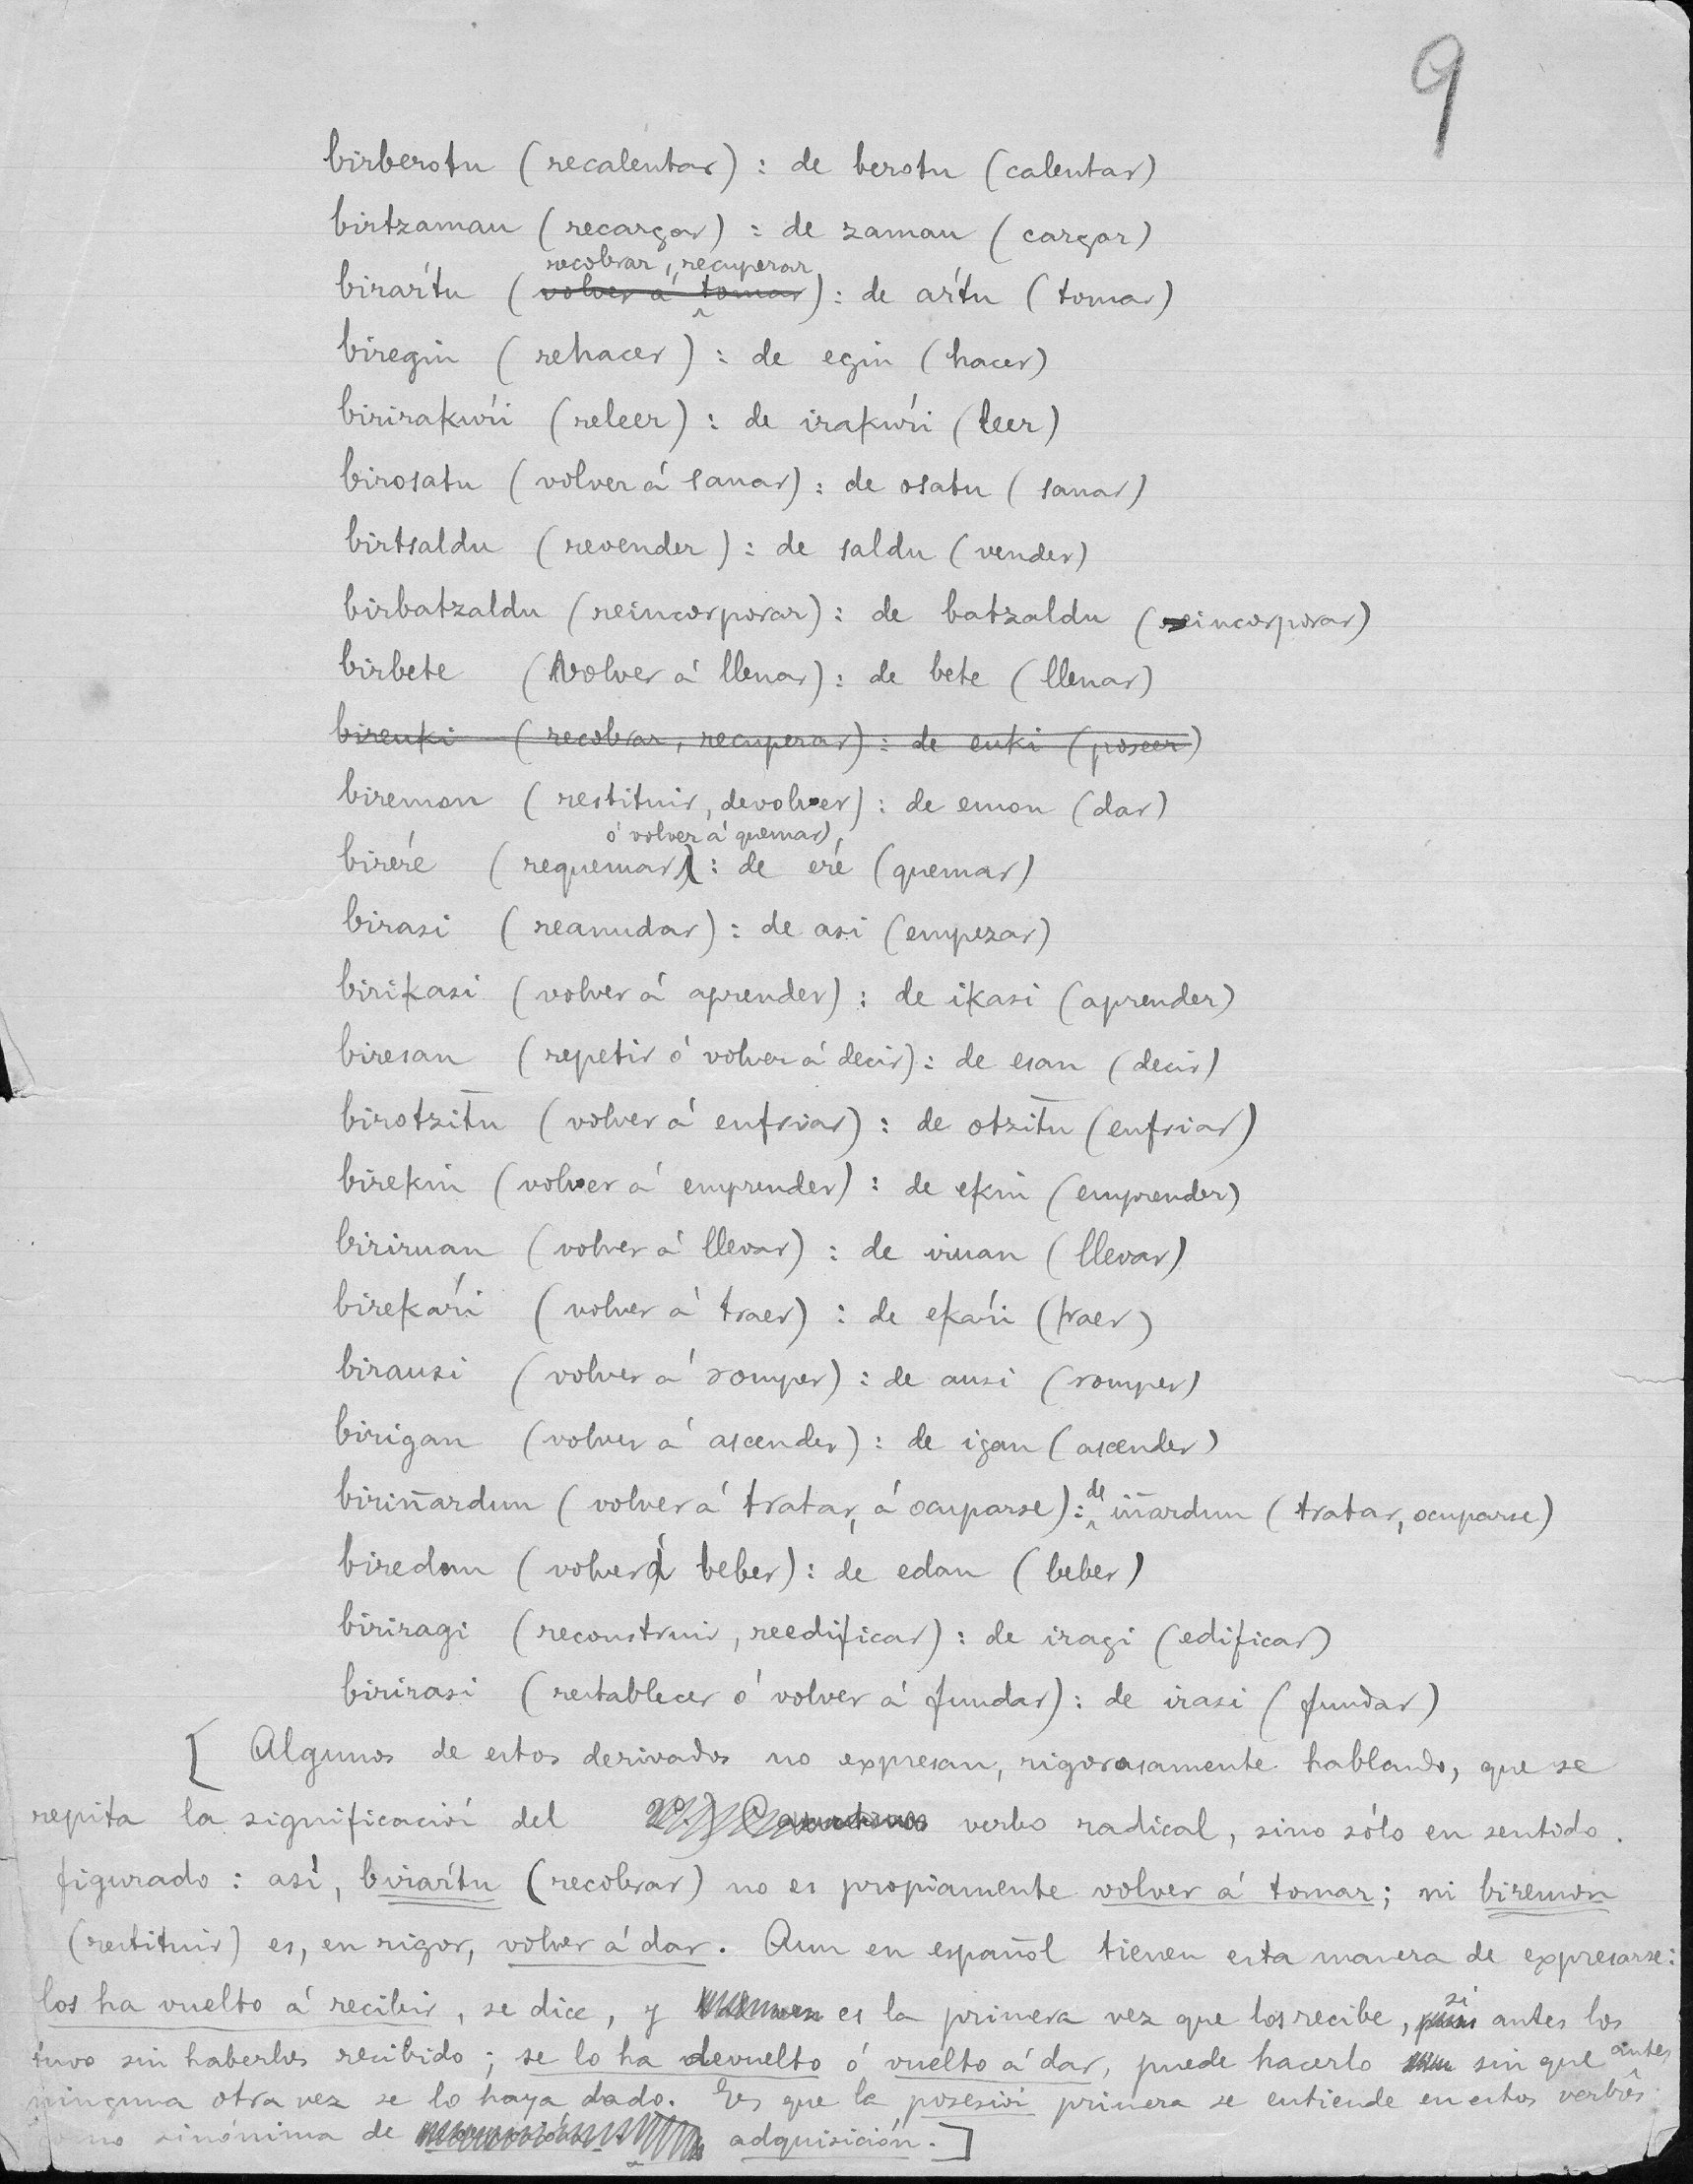 9
birberotu (recalentar) : de berotu (calentar)
birtzaman (recargar) : de zaman (cargar)
recobrar, recuperar
biraŕtu (volver á tomar) : de aŕtu (tomar)
biregin (rehacer) : de egin (hacer)
birirakuŕi (releer) : de irakuŕi (leer)
birosatu (volver á sanar) : de osatu (sanar)
birtsaldu (revender) : de saldu (vender)
birbatzaldu (reincorporar) : de batzaldu (incorporar)
birbete (volver á llenar) : de bete (llenar)
bireuki (recobrar, recuperar) : de euki (poseer)
biremon (restituir, devolver) : de emon (dar)
ó volver á quemar)
bireŕe (requemar : de eŕe (quemar)
birasi (reanudar) : de asi (empezar)
birikasi (volver á aprender) : de ikasi (aprender)
biresan (repetir ó volver á decir) : de esan (decir)
birotzit̄u (volver á enfriar) : de otzit̄u (enfriar)
birekin (volver á emprender) : de ekin (emprender)
biriruan (volver á llevar) : de iruan (llevar)
birekaŕi (volver á traer) : de ekaŕi (traer)
birausi (volver á romper) : de ausi (romper)
birigan (volver á ascender) : de igan (ascender)
biriñardun (volver á tratar, á ocuparse) : de iñardun (tratar, ocuparse)
biredan (volver á beber) : de edan (beber)
biriragi (reconstruir, reedificar) : de iragi (edificar)
birirasi (restablecer ó volver á fundar) : de irasi (fundar)
[ Algunos de estos derivados no expresan, rigorosamente hablando, que se
repita la significación del verbo radical, sino sólo en sentido.
figurado : así, biraŕtu (recobrar) no es propiamente volver á tomar; ni biremon
(restituir) es, en rigor, volver á dar. Aun en español tienen esta manera de expresarse:
los ha vuelto á recibir, se dice, y es la primera vez que los recibe, si antes los
tuvo sin haberlos recibido; se lo ha devuelto ó vuelto á dar, puede hacerlo sin que antes
ninguna otra vez se lo haya dado. Es que la posesión primera se entiende en estos verbos
como sinónima de adquisición. ]